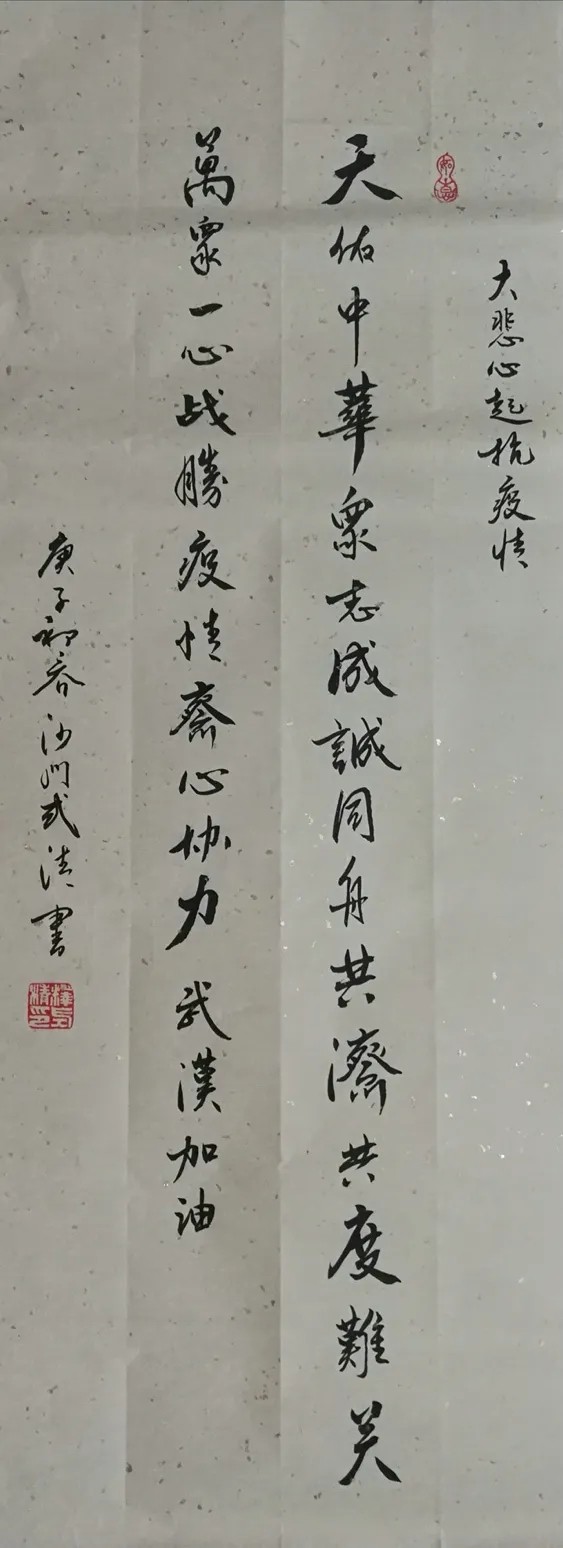 大悲心起抗疫情
如意
天佑中華衆志成誠同舟共濟共度難关
萬衆一心战勝疫情齋心协力 武漢加油
庚子初春沙门式清書